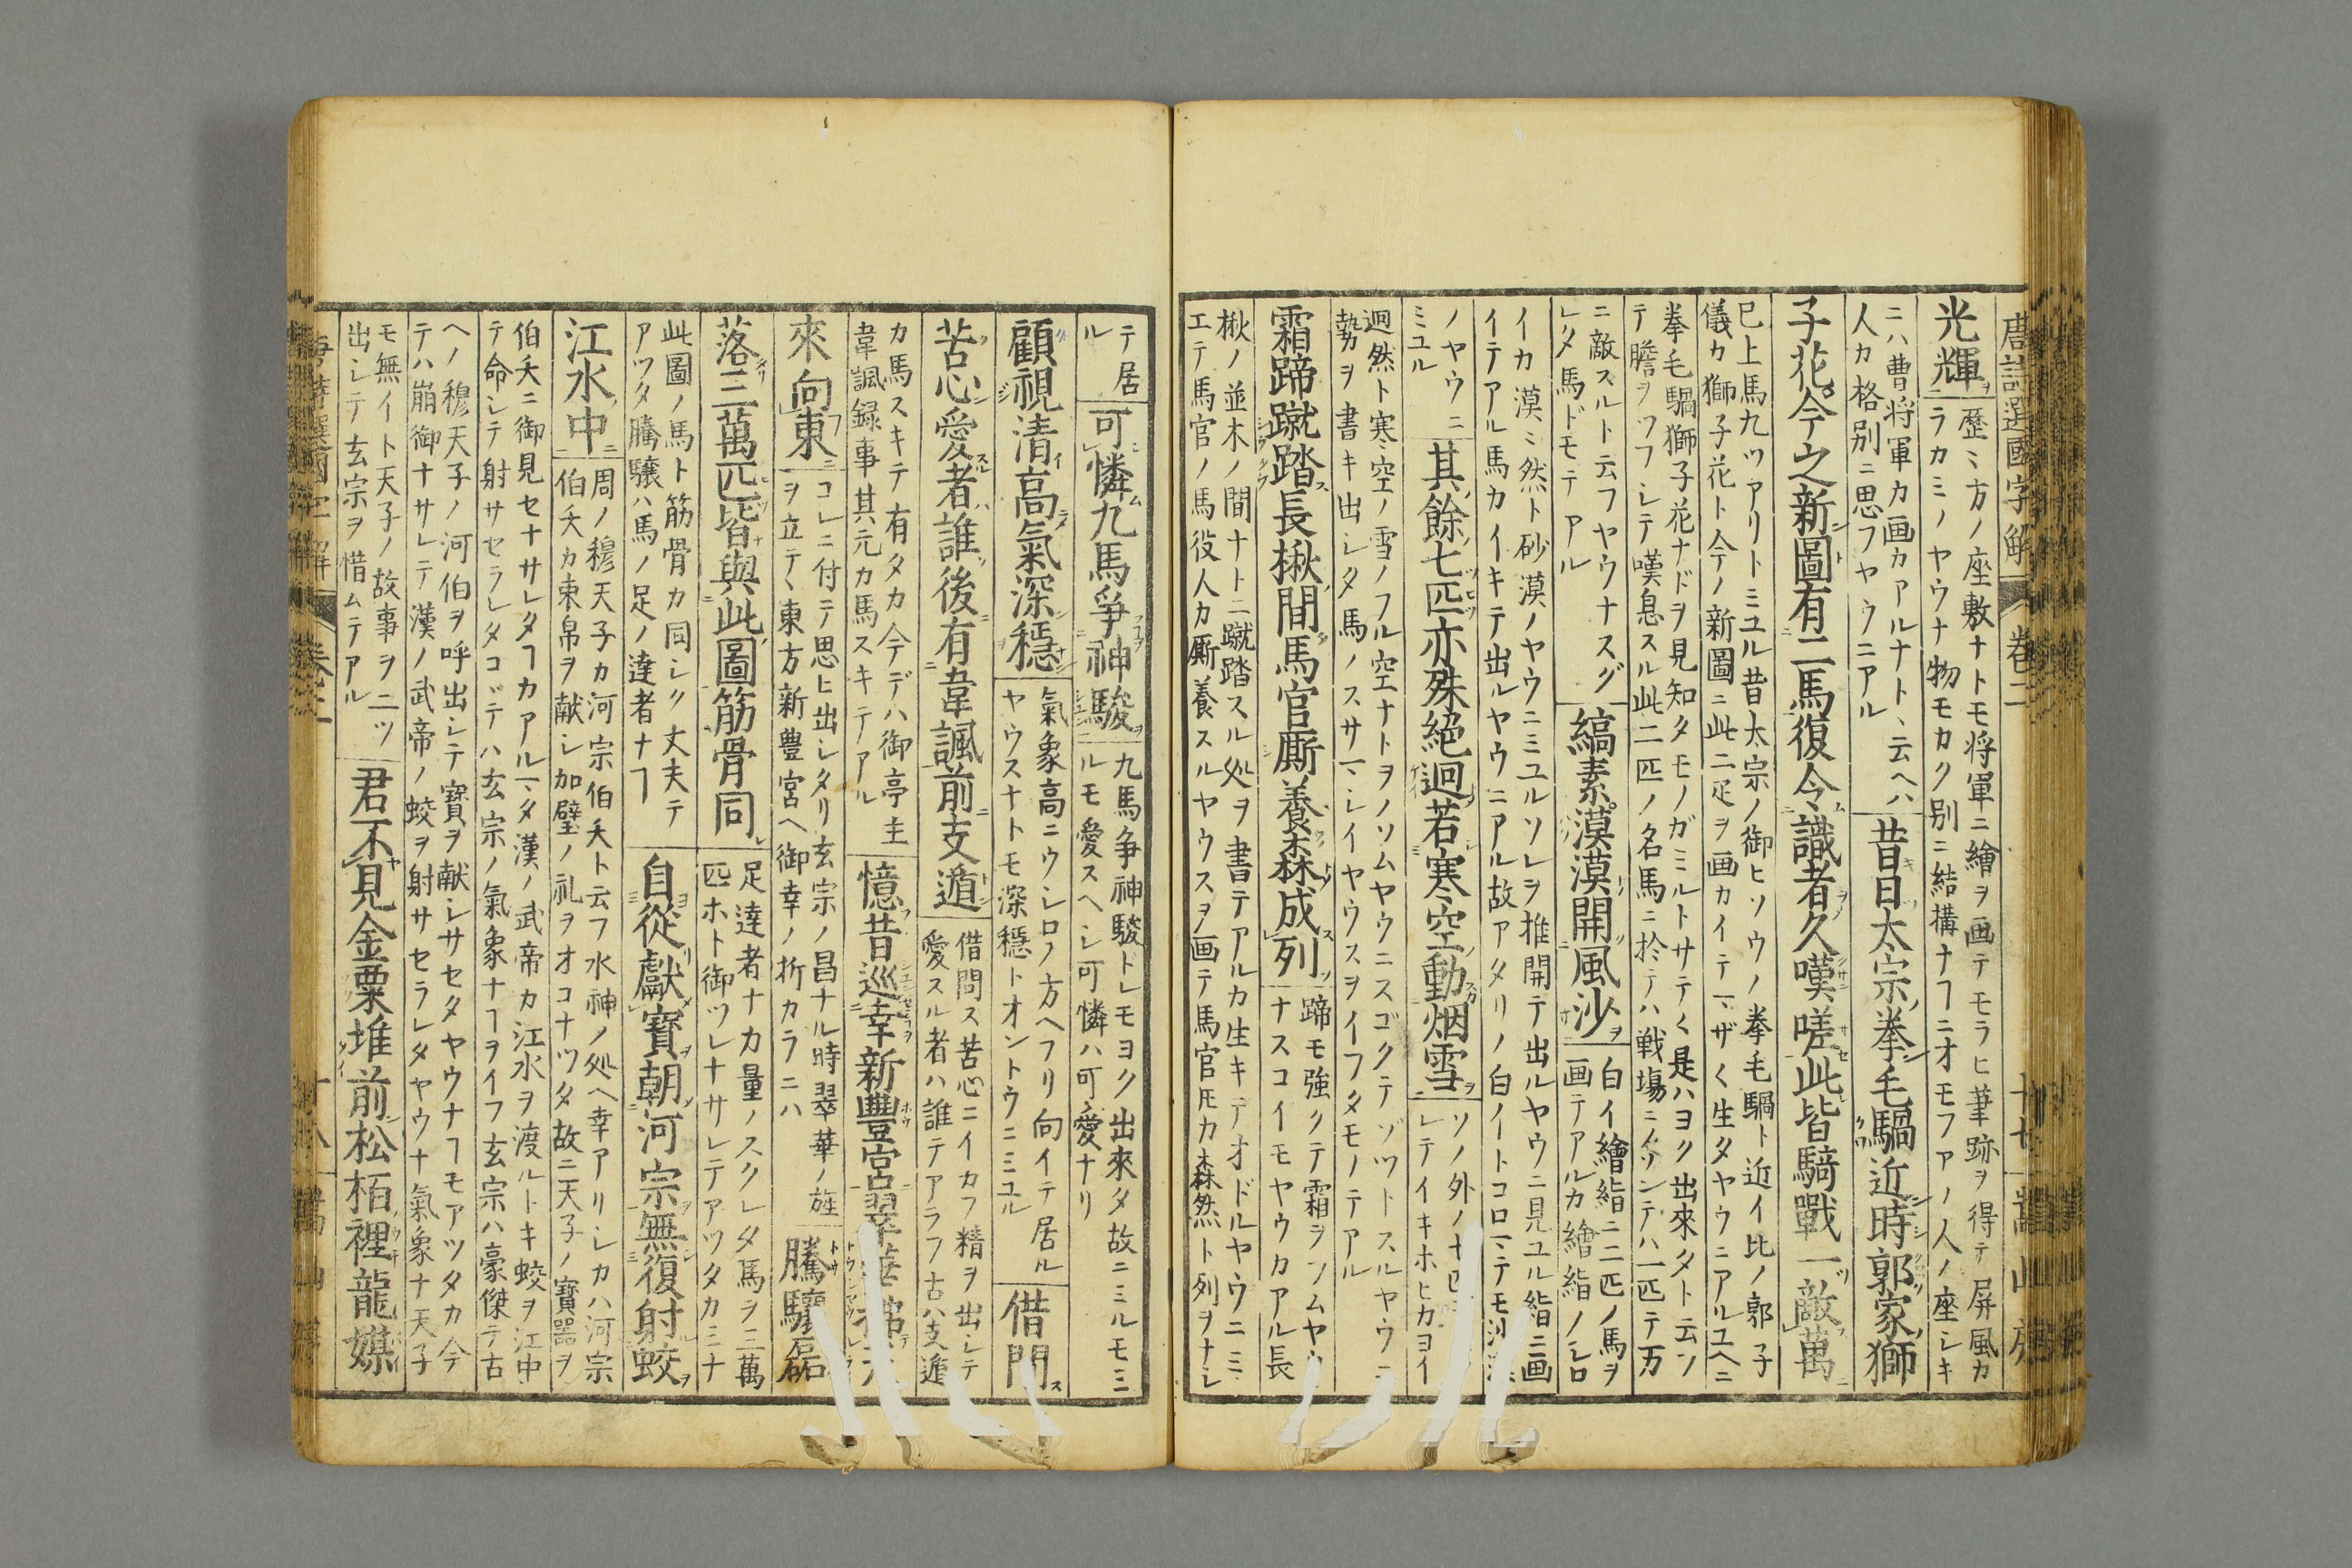 唐詩選國字解 卷二
光輝 歴〻方ノ座敷ナトモ将軍ニ繪ヲ画テモラヒ筆跡ヲ得テ屏風カ
ラカミノヤウナ物モカク別ニ結構ナヿニオモフアノ人ノ座シキ
ニハ曹将軍カ画カアルナト、云ヘハ
人カ格別ニ思フヤウニアル
昔日太宗拳毛騧近時郭家獅
子花今之新圖有二馬復令識者久嘆嗟此皆騎戰一敵萬
已上馬九ツアリトミユル昔太宗ノ御ヒソウノ拳毛騧ト近イ比ノ郭子
儀カ獅子花ト今ノ新圖ニ此二疋ヲ画カイテ
拳毛騧獅子花ナドヲ見知タモノガミルトサテ〱是ハヨク出來タト云ソ
テ贍ヲツフシテ嘆息スル此二匹ノ名馬ニ於テハ戦塲ニノソンテハ一匹テ万
ニ敵スルト云フヤウナスグ
レタ馬ドモテアル
縞素漠漠開風沙
白イ繪絹ニ二匹ノ馬ヲ
画テアルカ繪絹ノシロ
イカ漠〻然ト砂漠ノヤウニミユルソレヲ推開テ出ルヤウニ見ユル絹ニ画
イテアル馬カイキテ出ルヤウニアル故アタリノ白イトコロ
ノヤウニ
ミユル
其餘七匹亦殊絕迥若寒空動烟雪
ソノ外ノ七匹
レテイキホヒカヨイ
迥然ト寒空ノ雪ノフル空ナトヲノソムヤウニスゴクテゾツトスルヤウニ
勢ヲ書キ出シタ馬ノスサマシイヤウスヲイフタモノテアル
霜蹄蹴踏長楸間馬官厮養森成列
蹄モ強クテ霜ヲフムヤウ
ナスコイモヤウカアル長
楸ノ並木ノ間ナトニ蹴踏スル処ヲ書テアルカ生キテオドルヤウニミ
エテ馬官ノ馬役人カ厮養スルヤウスヲ画テ馬官𪜈カ森然ト列ヲナシ
テ居
ル
可憐九馬爭神駿
九馬争神駿ドレモヨク出來タ故ニミルモミ
ルモ愛スヘシ可憐ハ可愛ナリ
顧視清高氣深穩
氣象高ニウシロノ方ヘフリ向イテ居ル
ヤウスナトモ深穏トオントウニミユル
借問
苦心愛者誰後有韋諷前支遁
借問ス苦心ニイカフ精ヲ出シテ
愛スル者ハ誰テアラフ古ハ支遁
カ馬スキテ有タカ今デハ御亭主
韋諷録事其元カ馬スキテアル
憶昔巡幸新豐宮翠華拂天
來向東
コレニ付テ思ヒ出シタリ玄宗ノ昌ナル時翠華ノ旌
ヲ立テ、東方新豊宮ヘ御幸ノ折カラニハ
騰驤磊
落三萬匹皆與此圖筋骨同
足達者ナカ量ノスクレタ馬ヲ三萬
匹ホト御ツレナサレテアツタカミナ
此圖ノ馬ト筋骨カ同シク丈夫テ
アツタ騰驤ハ馬ノ足ノ達者ナヿ
自從獻寶朝河宗無復射蛟
江水中
周ノ穆天子カ河宗伯夭ト云フ水神ノ処ヘ幸アリシカハ河宗
伯夭カ束帛ヲ献シ加璧ノ礼ヲオコナツタ故ニ天子ノ寳器ヲ
伯夭ニ御見セナサレタヿカアル、タ漢ノ武帝カ江水ヲ渡ルトキ蛟ヲ江中
テ命シテ射サセラレタコヽデハ玄宗ノ氣象ナヿヲイフ玄宗ハ豪傑テ古
ヘノ穆天子ノ河伯ヲ呼出シテ寳ヲ献シサセタヤウナヿモアツタカ今
テハ崩御ナサレテ漢ノ武帝ノ蛟ヲ射サセラレタヤウナ氣象ナ天子
モ無イト天子ノ故事ヲ二ツ
出シテ玄宗ヲ惜ムテアル
君不見金粟堆前松栢裡龍媒